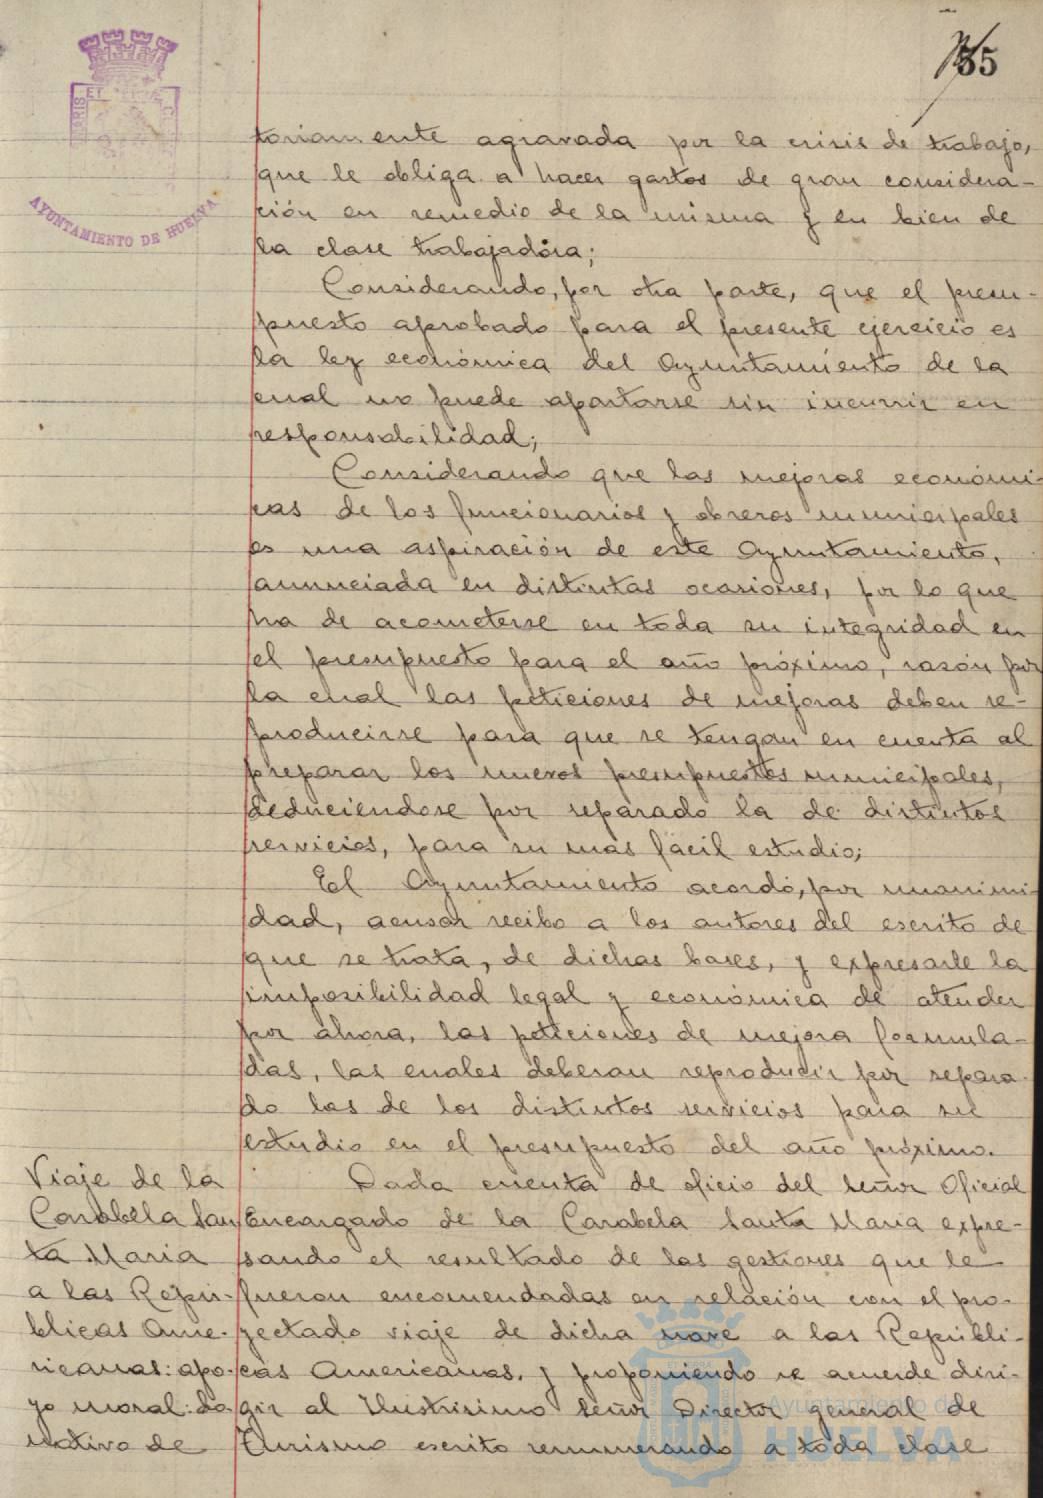 35
AYUNTAMIENTO DE HUELVA
toriamente agravada por la crisis de trabajo,
que le obliga a hacer gastos de gran considera-
ción en remedio de la misma y en bien de
la clase trabajadora;
Considerando, por otra parte, que el presu-
puesto aprobado para el presente ejercicio es
la ley económica del Ayuntamiento de la
cual no puede apartarse sin incurrir en
responsabilidad;
Considerando que las mejoras económi-
cas de los funcionarios y obreros municipales
es una aspiración de este Ayuntamiento,
anunciada en distintas ocasiones, por lo que
ha de acometerse en toda su integridad en
el presupuesto para el año próximo, razón por
la cual las peticiones de mejoras deben re-
producirse para que se tengan en cuenta al
preparar los nuevos presupuestos municipales,
deduciendose por separado la de distintos
servicios, para su más fácil estudio;
El Ayuntamiento acordó, por unanimi-
dad, acusar recibo a los autores del escrito de
que se trata, de dichas bases, y expresarle la
imposibilidad legal y económica de atender
por ahora, las peticiones de mejora formula-
das, las cuales deberan reproducir por separa-
do las de los distintos servicios para su
estudio en el presupuesto del año próximo.
Viaje de la
Carabela San
ta Maria
a las Repú-
blicas Ame-
ricanas: apo-
yo moral: do
nativo de
Dada cuenta de oficio del señor Oficial
Encargado de la Carabela Santa Maria expre-
sando el resultado de las gestiones que le
fueron encomendadas en relación con el pro-
yectado viaje de dicha nave a las Repúbli-
cas Americanas, y proponiendo se acuerde diri-
gir al Ilustrisimo señor Director general de
Turismo escrito renunciando a toda clase
Ayuntamiento de
HUELVA